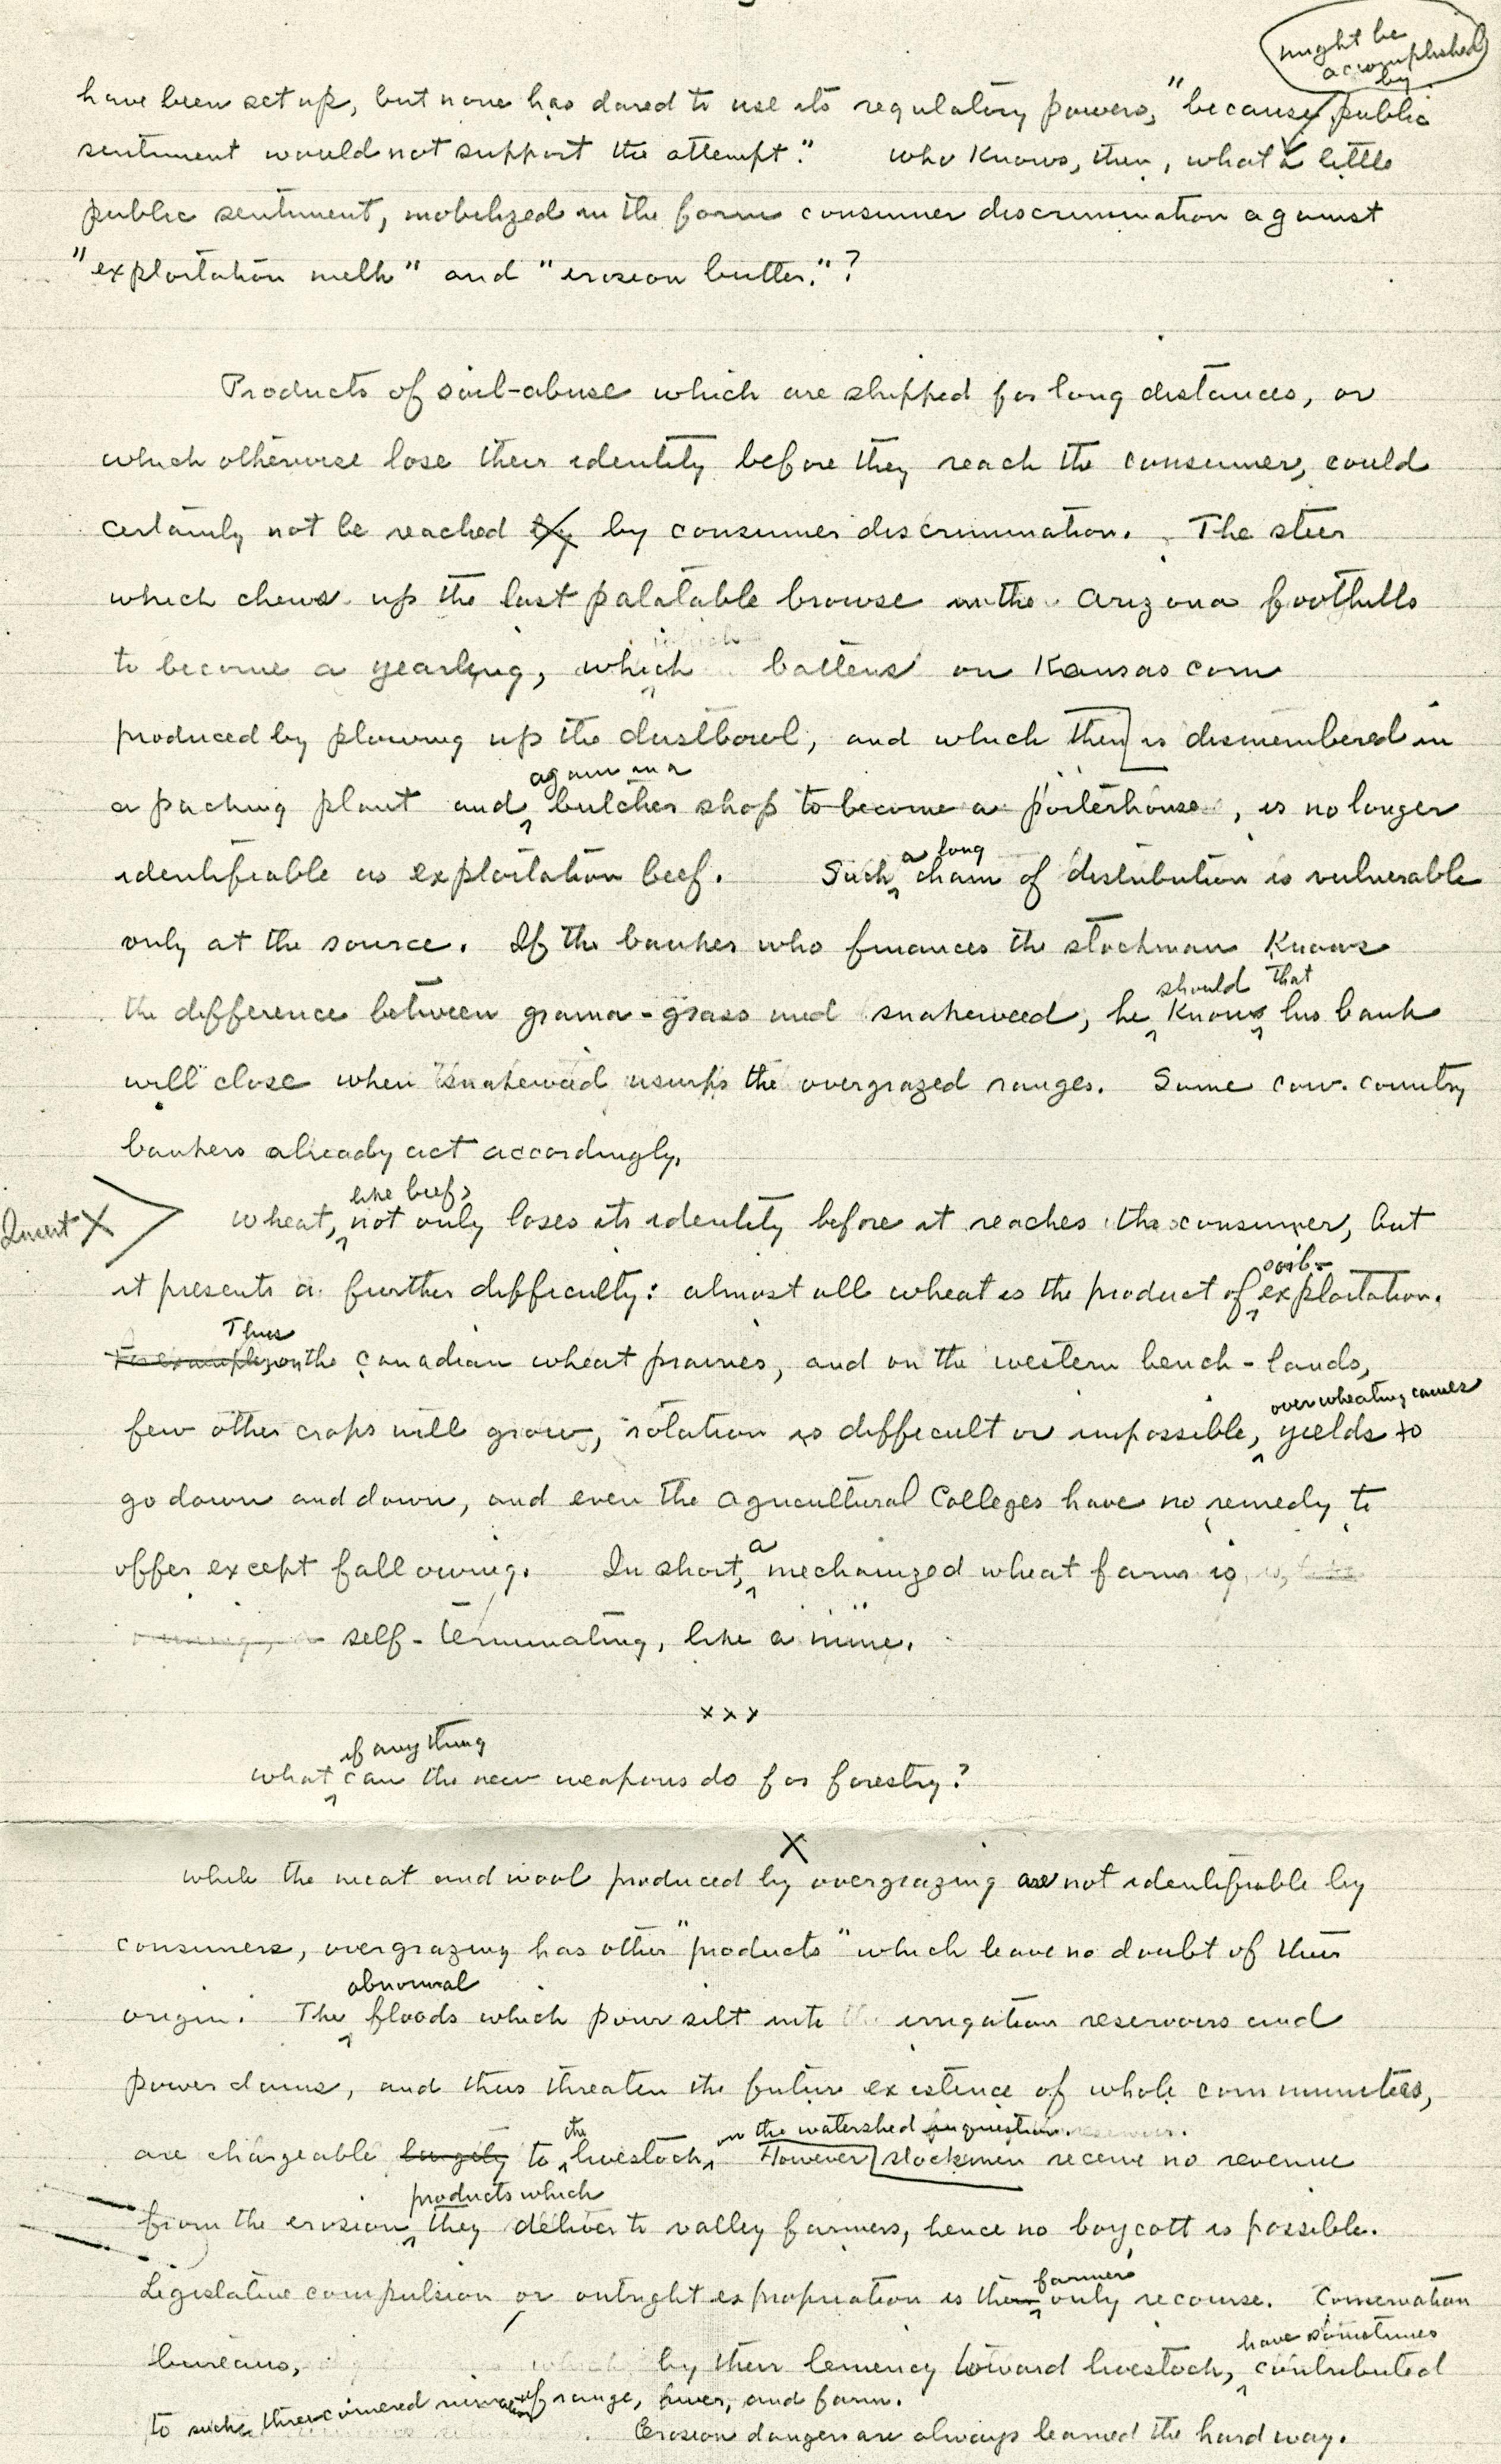 might be
accomplished
by
have been set up, but none has dared to use its regulatory powers, "because public
sentiment would not support the attempt." Who knows, then, what a little
public sentiment, mobilized in the form consumer discrimination against
"exploitation milk" and "erosion butter."?
Products of soil-abuse which are shipped for long distances, or
which otherwise lose their identity before they reach the consumer, could
certainly not be reached by by consumer discrimination. The steer
which chews up the last palatable browse in the Arizona foothills
to become a yearling, which battens on Kansas corn
produced by plowing up the dustbowl, and which then is dismembered in
again in a
a packing plant and butcher shop to become a porterhouse, is no longer
a long
identifiable as exploitation beef. Such chain of distribution is vulnerable
only at the source. If the banker who finances the stockman knows
should that
the difference between grama-grass and snakeweed, he knows his bank
will close when snakeweed usurps the overgrazed ranges. Some cow-country
bankers already act accordingly.
like beef,
Insert X Wheat, not only loses its identity before it reaches the consumer, but
soil-
it presents a further difficulty: almost all wheat is the product of exploitation.
Thus
For example, on the Canadian wheat prairies, and on the western bench-lands,
overwheating causes
few other crops will grow, rotation is difficult or impossible, yields to
go down and down, and even the Agricultural Colleges have no remedy to
a
offer except fallowing. In short, mechanized wheat farm is
self-terminating, like a mine.
x x x
if anything
What can the new weapons do for forestry?
X
While the meat and wool produced by overgrazing are not identifiable by
consumers, overgrazing has other "products" which leave no doubt of their
abnormal
origin. The floods which pour silt into irrigation reservoirs and
power dams, and thus threaten the future existence of whole communities,
the on the watershed in question.
are chargeable largely to livestock. However stockmen receive no revenue
products which
from the erosion they deliver to valley farmers, hence no boycott is possible.
farmers'
Legislative compulsion or outright expropriation is their only recourse. Conservation
have sometimes
bureaus, which by their leniency toward livestock, contributed
to such three cornered of range, river, and farm.
Erosion dangers are always learned the hard way.